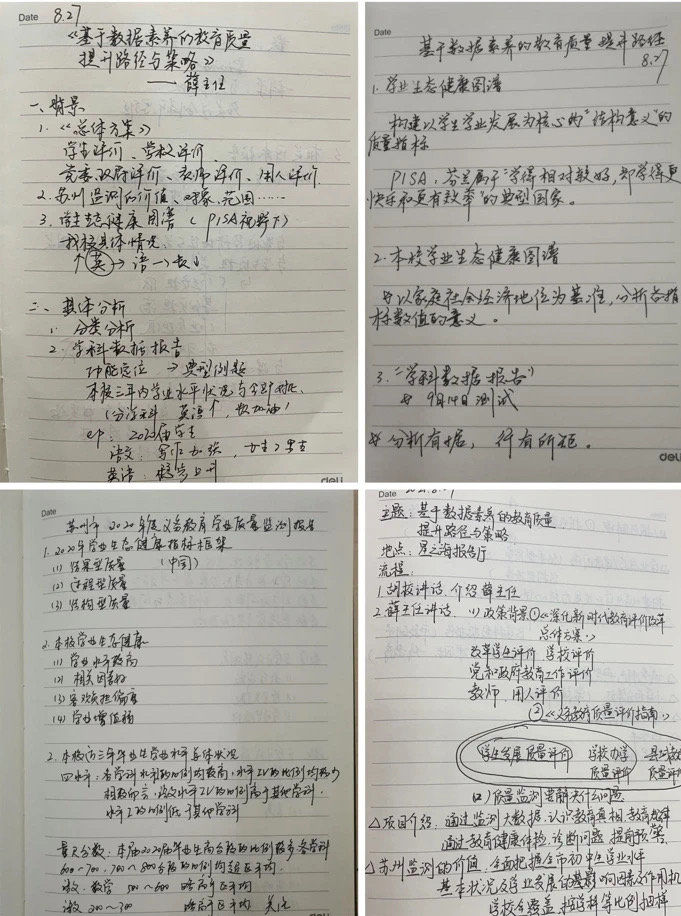 Date 8.27
《基于数据素养的教育质量
提升路径与策略》
——薛主任
一、背景
1.《总体方案》
学生评价、学校评价、
党委政府评价、教师评价、用人评价
2. 苏州监测的价值、对象、范围……
3. 学生态健康图谱(PISA视野下)
我校具体情况
↑英→语→数↓
二、具体分析
1. 分类分析
2. 学科数据报告
功能定位 → 典型例题
本校三年内学业水平状况与全市对比
(分学科 英语↑,数加油!
ep:2020届学生
语文:
英语:稳步上升
deli
Date
基于数据素养的教育质量提升路径
8.27
1. 学业生态健康图谱
构建以学生学业发展为核心的“结构意义”的
质量指标
PISA:芬兰属于“学得相对较好,却学得更
快乐和更有效率”的典型国家。
2. 本校学业生态健康图谱
以家庭社会经济地位为基准,分析各指
标数值的意义。
3. “学科数据报告”
9月14日测试
分析有据,行有所矩。
deli
Date
苏州市2020年度义务教育学业质量监测报告
1. 2020年学业生态健康指标框架
(1) 结果型质量 (中国)
(2) 过程型质量
(3) 结构型质量
2. 本校学业生态健康
(1) 学业水平较高
(2) 相关因素好
(3) 客观负担偏高
(4) 学业增值弱
2. 本校近三年毕业生学业水平总体状况
四水平:各学科水平Ⅳ的比例均较高,水平Ⅳ的比例均较少
相较而言,英语水平Ⅳ的比例高于其他学科
水平Ⅰ的比例低于其他学科
量尺分数:本届2020届毕业生高分段的比例较多 各学科
600~700, 700~800分段的比例均超区平均.
数学 500~600 略高于区平均
200~300 略高于区平均
Date 2021.8.27
主题:基于数据素养的教育质量
提升路径与策略
地点:星海报告厅
流程:
1.胡校讲话,介绍薛主任
2.薛主任讲话. (1)政策背景①《深化新时代教育评价改革
总体方案》
改革学生评价 学校评价
党和政府教育工作评价
教师、用人评价
②《义务教育质量评价指南》
学生发展质量评价 学校办学 县域教
质量评价 质量评
(2)质量监测要解决什么问题
△项目介绍:通过监测大数据,认识教育真相,教育规律
通过教育健康体检,诊断问题,提前预警.
△苏州监测的价值 全面把握全市初中生学业水平
基本状况及学业发展的影响因素及作用机
学校全覆盖,按学科等比例抽样